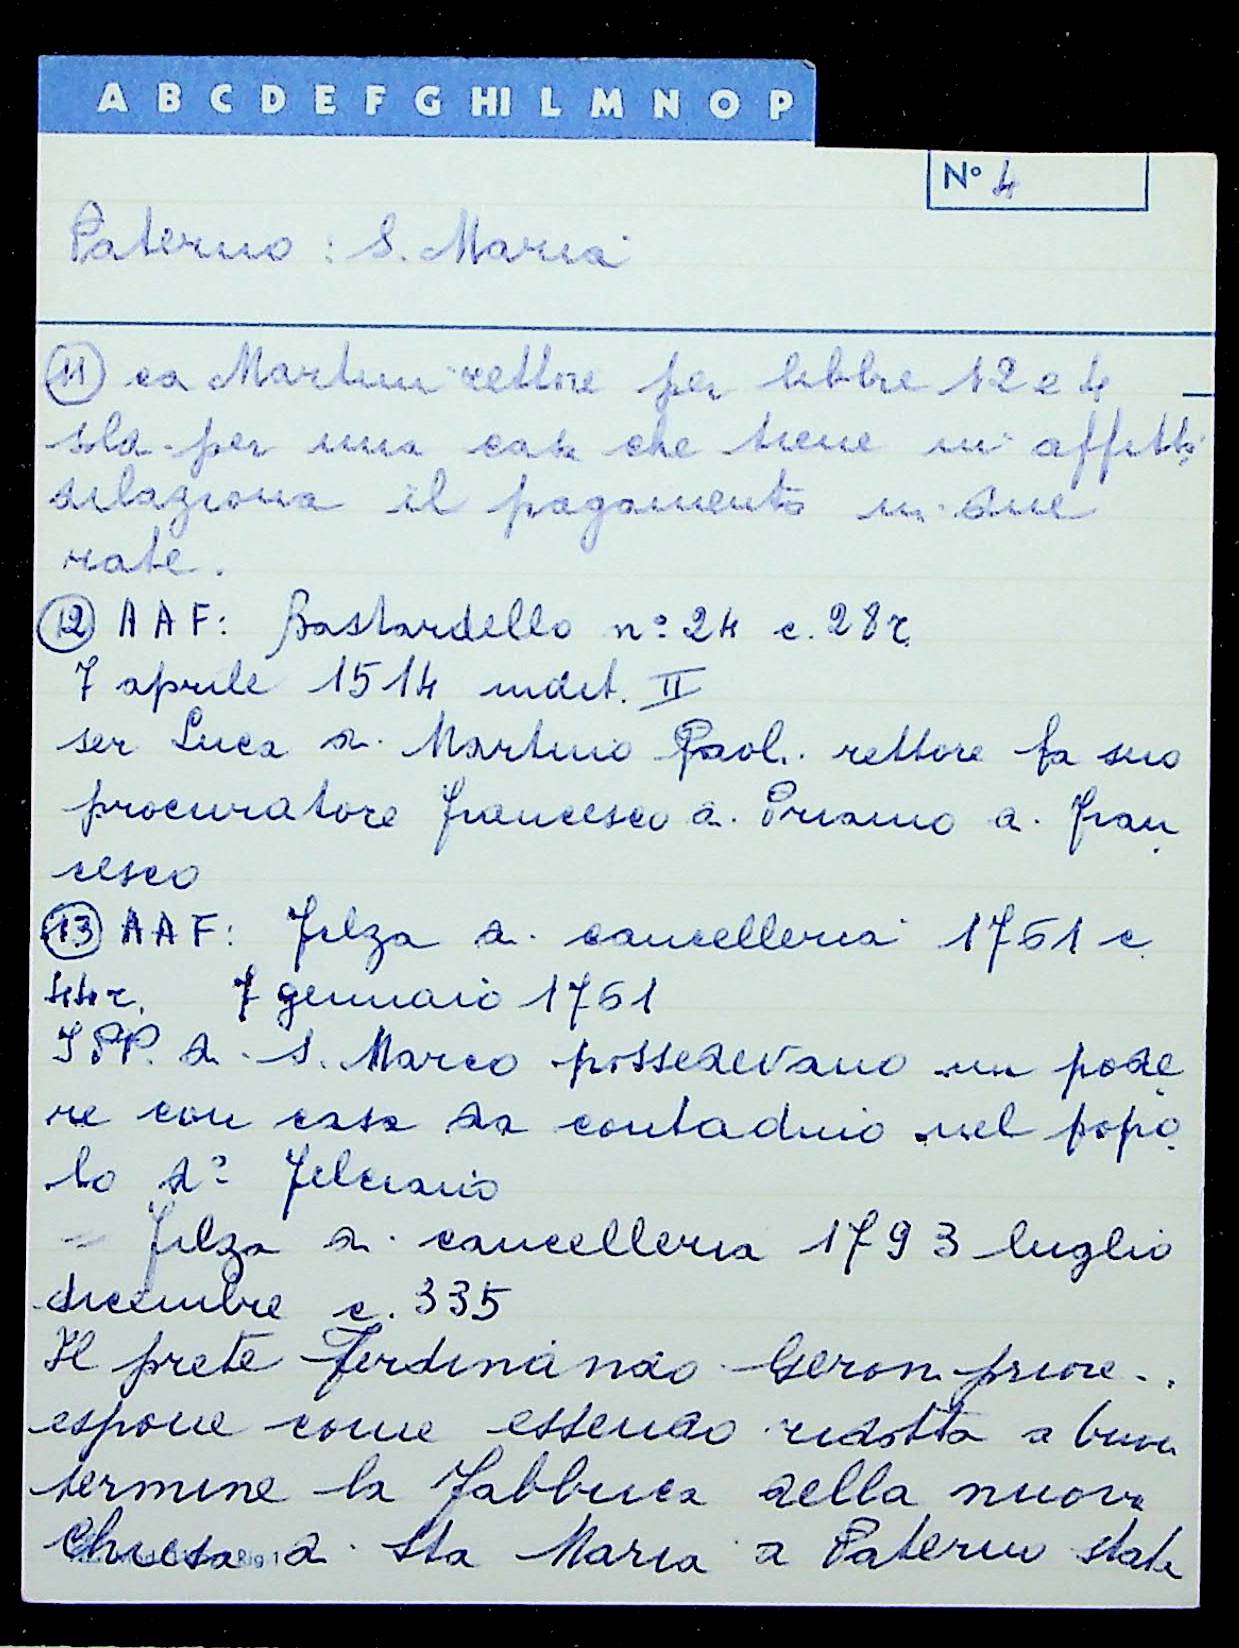 A B C D E F G HI L M N O P
N° 4
Paterno : S. Maria
11 ca Martini rettore per libbre 12 e 4
sold. per una casa che tiene in affitto
dilaziona il pagamento in due
rate.
12 AAF: Bastardello n° 24 c. 28r
7 aprile 1514 indit. II
ser Luca d. Martino Paol. rettore fa suo
procuratore Francesco d. Priamo d. Fran
cesco
13 AAF: Filza d. cancelleria 1761 c.
44r. 7 gennaio 1761
I PP. d. S. Marco possedevano un pode
re con casa da contadino nel popo
lo d° Felciano
= Filza d. cancelleria 1793 luglio
dicembre c. 335
Il prete Ferdinando Geron. priore..
espone come essendo ridotta a buon
termine la fabbrica della nuova
chiesa d. Sta Maria a Paterno stata